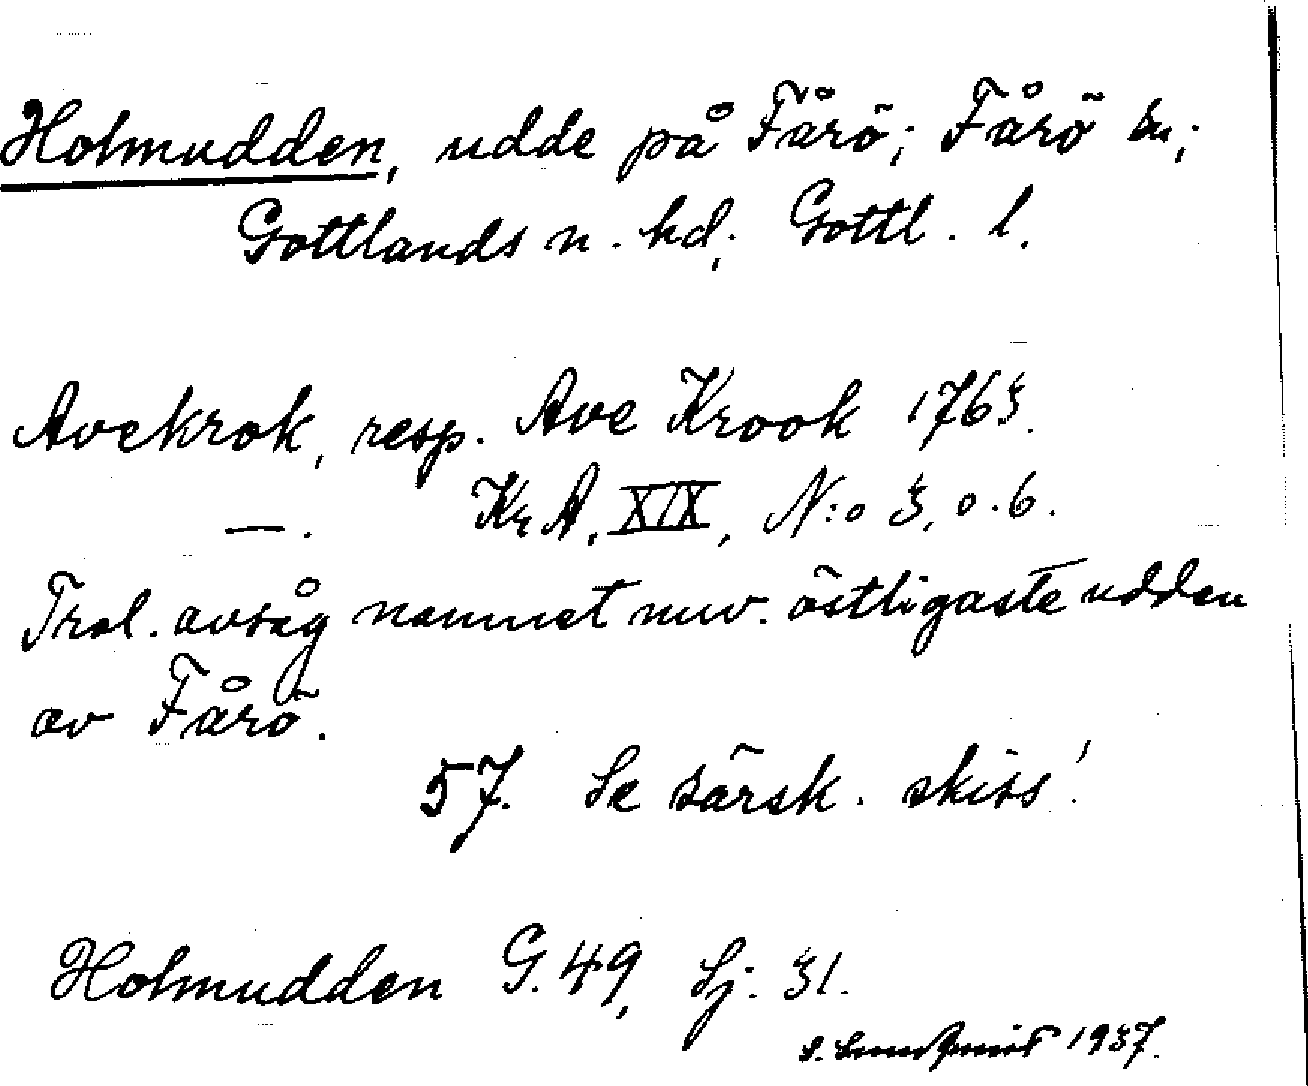 Holmudden, udde på Fårö; Fårö sn;
Gottlands n. hd; Gottl. l.
Avekrok, resp. Ave Krook 1763.
—. KrA, XIX, N:o 3, o. 6.
Trol. avsåg namnet nuv. östligaste udden
av Fårö.
57. Se särsk. skiss!
Holmudden G. 49, Sj. 31.
S. Lundqvist 1937.